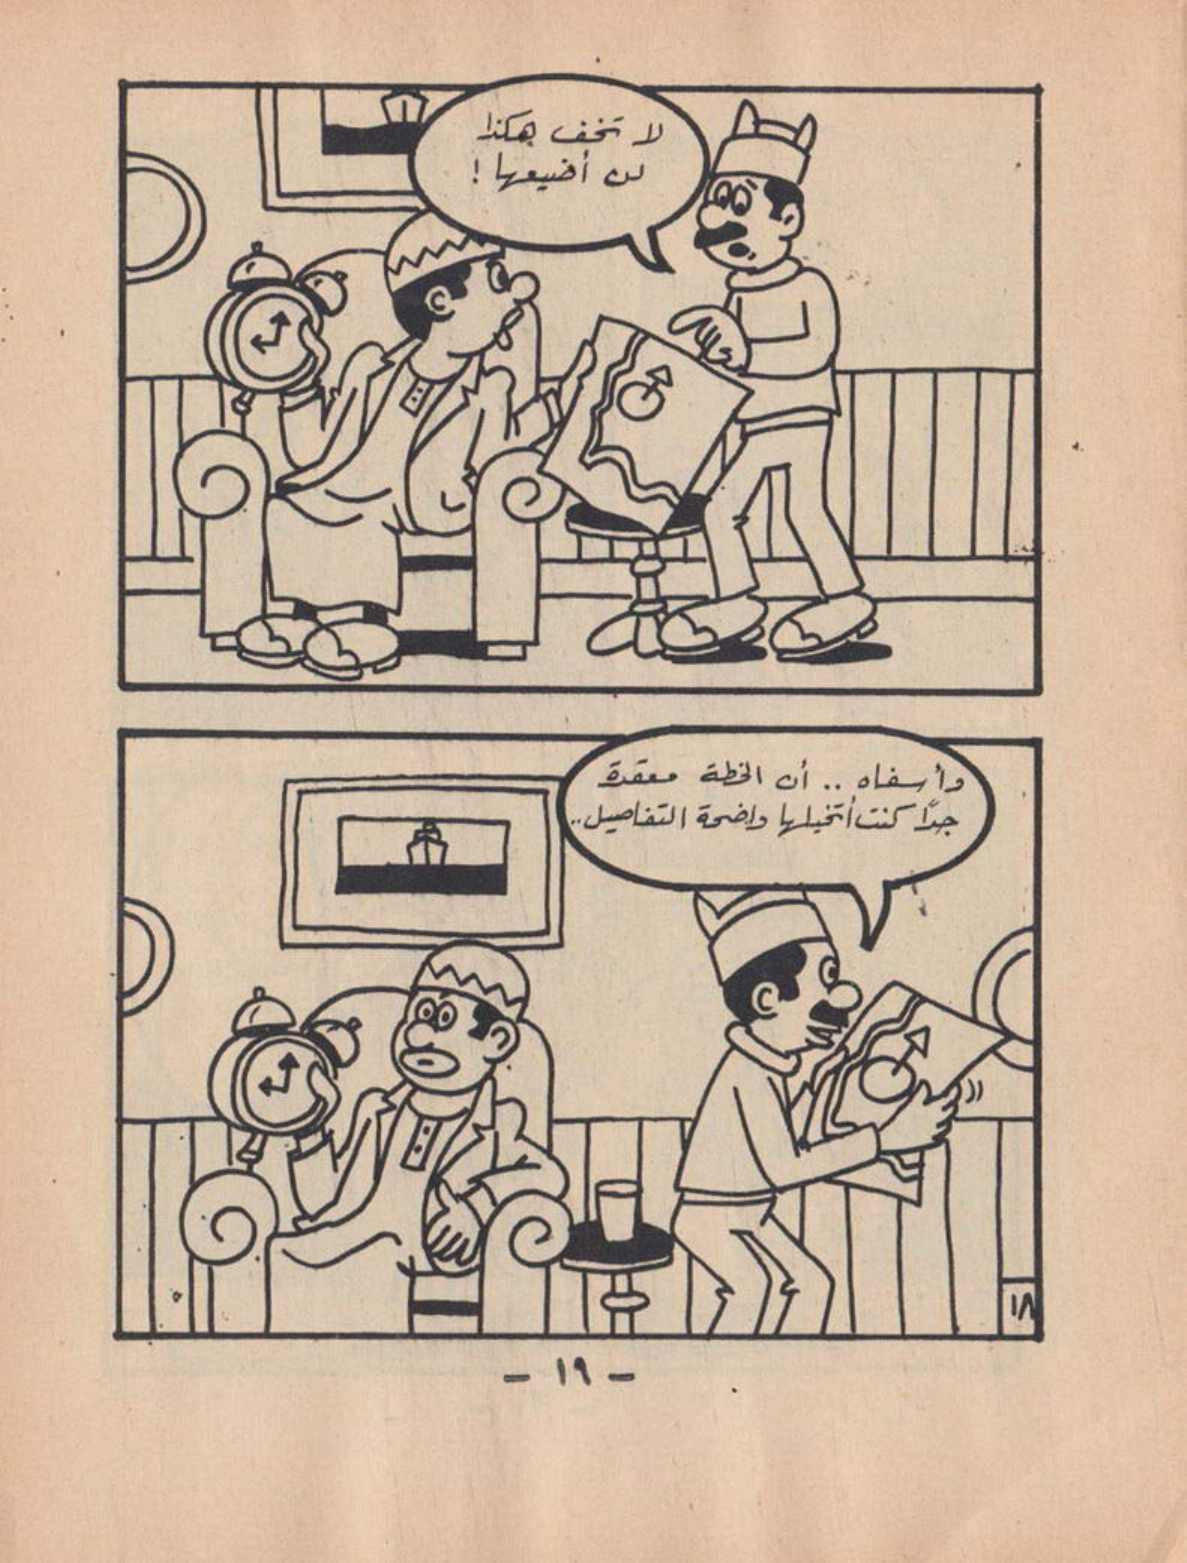 لا تخف هكذا
لن أضيعها !
وأسفاه .. أن الخطة معقدة
جداً كنت أتخيلها واضحة التفاصيل..
١٨
- ١٩ -